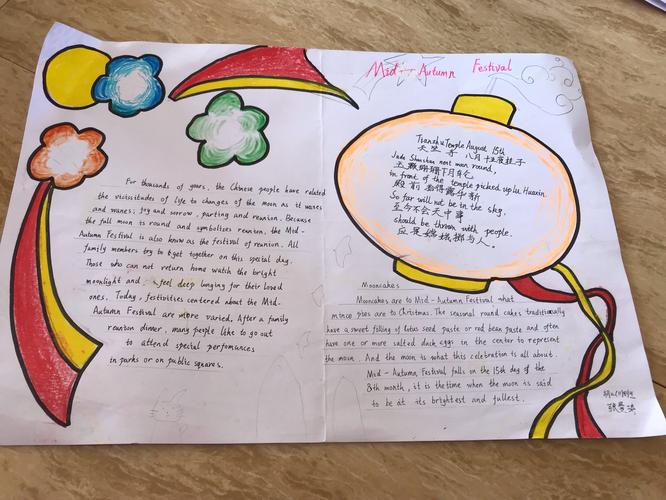 Mid-Autumn Festival
For thousands of years, the Chinese people have related
the vicissitudes of life to changes of the moon as it waxes
and wanes; joy and sorrow, parting and reunion. Because
the full moon is round and symbolizes reunion, the Mid-
Autumn Festival is also know as the festival of reunion. All
family members try to get together on this special day.
Those who can not return home watch the bright
moonlight and feel deep longing for their loved
ones. Today, festivities centered about the Mid-
Autumn Festival are more varied. After a family
reunion dinner, many people like to go out
to attend special perfomances
in parks or on public squares.
Tianzhu Temple August 15th
天竺寺 八月十五夜桂子
Jade Shanshan next moon round,
玉颗珊珊下月轮
in front of the temple picked up lu Huaxin.
殿前拾得露华新
So far will not be in the sky,
至今不会天中事
should be thrown with people.
应是嫦娥掷与人。
Mooncakes
Mooncakes are to Mid-Autumn Festival what
mince pies are to Christmas. The seasonal round cakes traditionally
have a sweet filling of lotus seed paste or red bean paste and often
have one or more salted duck eggs in the center to represent
the moon. And the moon is what this celebration is all about.
Mid-Autumn Festival falls on the 15th day of the
8th month, it is the time when the moon is said
to be at its brightest and fullest.